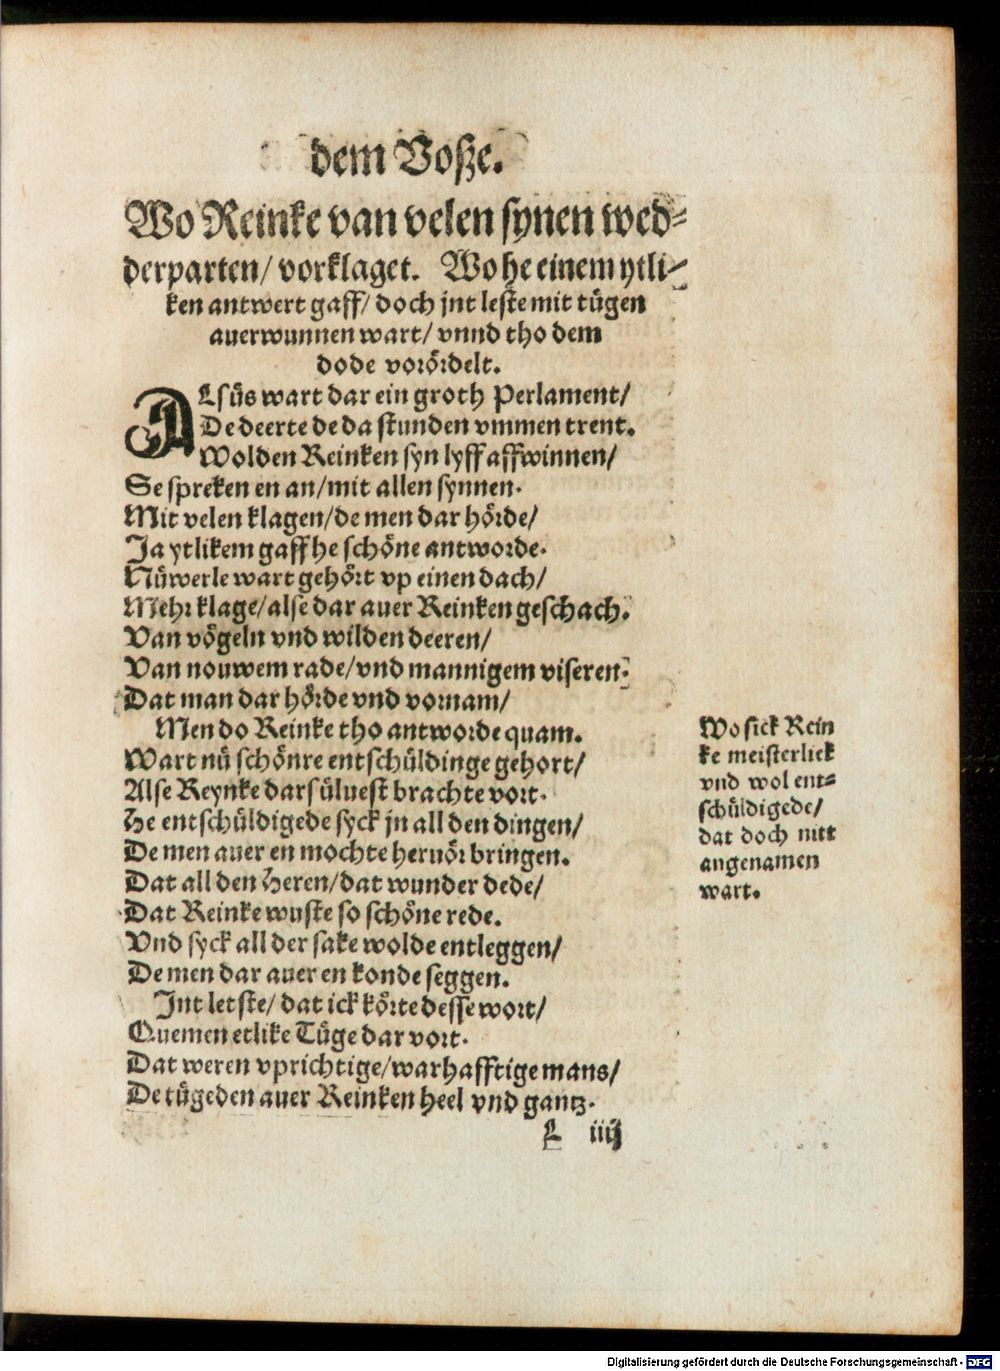 dem Voſze.
Wo Reinke van velen ſynen wed⸗
derparten/ vorklaget. Wo he einem ytli⸗
ken antwert gaff/ doch jnt leſte mit tügen
auerwunnen wart/ vnnd tho dem
dode vorördelt.
ALſüs wart dar ein groth Perlament/
De deerte de da ſtunden vmmen trent.
Wolden Reinken ſyn lyff affwinnen/
Se ſpreken en an/ mit allen ſynnen.
Mit velen klagen/ de men dar hörde/
Ja ytlikem gaff he ſchöne antworde.
Nüwerle wart gehört vp einen dach/
Mehr klage/ alſe dar auer Reinken geſchach.
Van vögeln vnd wilden deeren/
Van nouwem rade/ vnd mannigem viſeren.
Dat man dar hörde vnd vornam/
Men do Reinke tho antworde quam.
Wart nü ſchönre entſchüldinge gehort/
Alſe Reynke darſülueſt brachte vort.
He entſchüldigede ſyck jn all den dingen/
De men auer en mochte heruör bringen.
Dat all den Heren/ dat wunder dede/
Dat Reinke wuſte ſo ſchöne rede.
Vnd ſyck all der ſake wolde entleggen/
De men dar auer en konde ſeggen.
Jnt letſte/ dat ick körte deſſe wort/
Quemen etlike Tüge dar vort.
Dat weren vprichtige/ warhafftige mans/
De tügeden auer Reinken heel vnd gantz.
L iiij
Wo ſick Rein
ke meiſterlick
vnd wol ent⸗
ſchüldigede/
dat doch nitt
angenamen
wart.
Digitalisierung gefördert durch die Deutsche Forschungsgemeinschaft - DFG